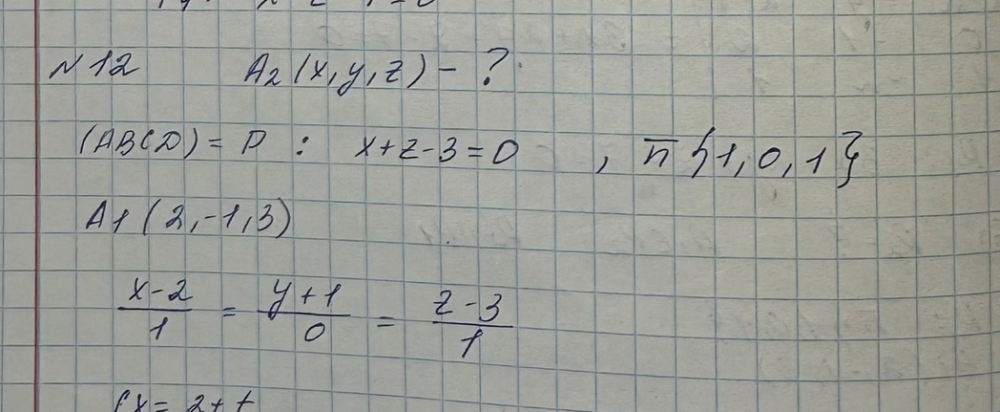 N12 A2(x,y,z) - ?
(ABCD) = P : x+z-3=0 , n̅{1,0,1}
A1(2,-1,3)
x-2/1 = y+1/0 = z-3/1
{x=2+t